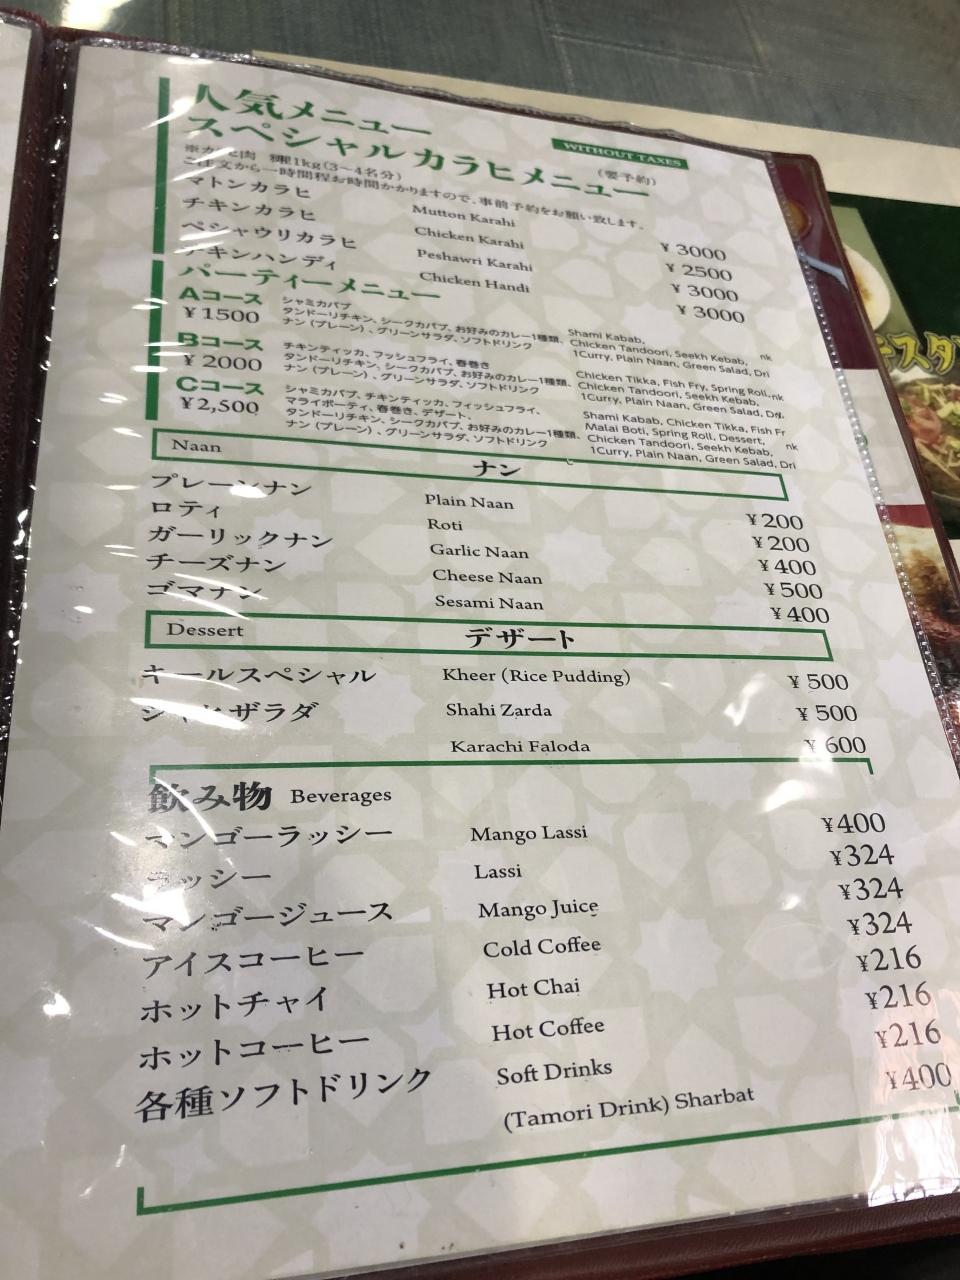 人気メニュー
スペシャルカラヒメニュー (要予約)
WITHOUT TAXES
※カラヒ肉 1kg(3〜4名分)
ご注文から一時間程お時間かかりますので、事前予約をお願い致します。
マトンカラヒ Mutton Karahi ¥3000
チキンカラヒ Chicken Karahi ¥2500
ペシャウリカラヒ Peshawri Karahi ¥3000
チキンハンディ Chicken Handi ¥3000
パーティーメニュー
Aコース
¥1500
シャミカバブ
タンドーリチキン、シークカバブ、お好みのカレー1種類、
ナン(プレーン)、グリーンサラダ、ソフトドリンク
Shami Kabab,
Chicken Tandoori, Seekh Kebab,
1Curry, Plain Naan, Green Salad, Dri
nk
Bコース
¥2000
チキンティッカ、フッシュフライ、春巻き
タンドーリチキン、シークカバブ、お好みのカレー1種類、
ナン(プレーン)、グリーンサラダ、ソフトドリンク
Chicken Tikka, Fish Fry, Spring Roll,
nk
Chicken Tandoori, Seekh Kebab,
1Curry, Plain Naan, Green Salad,
Cコース
¥2,500
シャミカバブ、チキンティッカ、フィッシュフライ、
マライボーティ、春巻き、デザート、
タンドーリチキン、シークカバブ、お好みのカレー1種類、
ナン(プレーン)、グリーンサラダ、ソフトドリンク
Shami Kabab, Chicken Tikka, Fish Fr
Malai Boti, Spring Roll, Dessert,
Chicken Tandoori, Seekh Kebab,
nk
1Curry, Plain Naan, Green Salad, Dri
Naan ナン
プレーンナン Plain Naan ¥200
ロティ Roti ¥200
ガーリックナン Garlic Naan ¥400
チーズナン Cheese Naan ¥500
ゴマナン Sesami Naan ¥400
Dessert デザート
キールスペシャル Kheer (Rice Pudding) ¥500
シャヒザラダ Shahi Zarda ¥500
Karachi Faloda ¥600
飲み物 Beverages
マンゴーラッシー Mango Lassi ¥400
ラッシー Lassi ¥324
マンゴージュース Mango Juice ¥324
アイスコーヒー Cold Coffee ¥324
ホットチャイ Hot Chai ¥216
ホットコーヒー Hot Coffee ¥216
各種ソフトドリンク Soft Drinks ¥216
(Tamori Drink) Sharbat ¥400